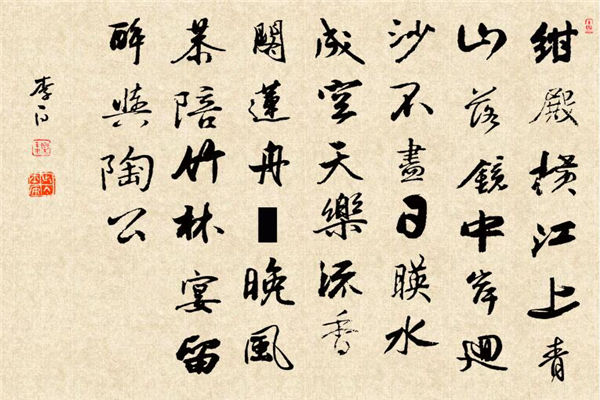 紺殿橫江上青
山落鏡中岸廻
沙不盡日暎水
成空天樂流香
閣蓮舟晚風
恭陪竹林宴留
醉與陶公
李白